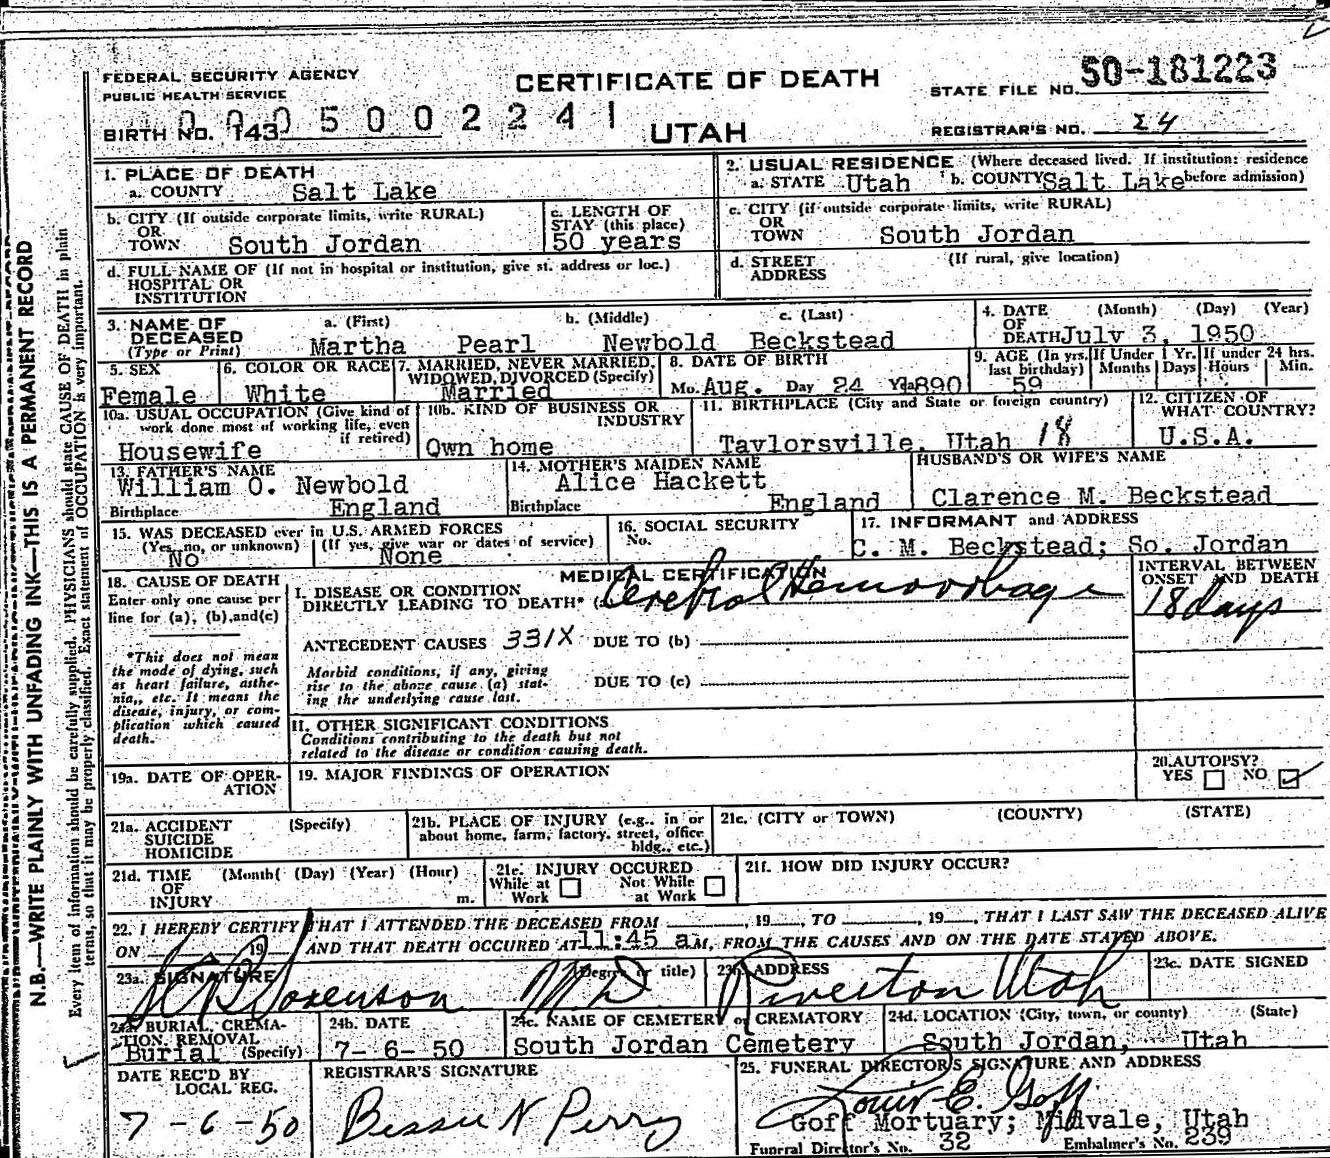 FEDERAL SECURITY AGENCY
PUBLIC HEALTH SERVICE
CERTIFICATE OF DEATH
UTAH
STATE FILE NO. 50-181223
BIRTH NO. 143
0005002241
REGISTRAR'S NO. 24
N.B.—WRITE PLAINLY WITH UNFADING INK—THIS IS A PERMANENT RECORD
Every item of information should be carefully supplied. PHYSICIANS should state CAUSE OF DEATH in plain
terms, so that it may be properly classified. Exact statement of OCCUPATION is very important.
1. PLACE OF DEATH
a. COUNTY Salt Lake
2. USUAL RESIDENCE (Where deceased lived. If institution: residence
a. STATE Utah b. COUNTY Salt Lake before admission)
b. CITY (If outside corporate limits, write RURAL)
OR
TOWN South Jordan
c. LENGTH OF
STAY (this place)
50 years
c. CITY (if outside corporate limits, write RURAL)
OR
TOWN South Jordan
d. FULL NAME OF (If not in hospital or institution, give st. address or loc.)
HOSPITAL OR
INSTITUTION
d. STREET (If rural, give location)
ADDRESS
3. NAME OF
DECEASED
(Type or Print)
a. (First) b. (Middle) c. (Last)
Martha Pearl Newbold Beckstead
4. DATE (Month) (Day) (Year)
OF
DEATH July 3, 1950
5. SEX
Female
6. COLOR OR RACE
White
7. MARRIED, NEVER MARRIED,
WIDOWED, DIVORCED (Specify)
Married
8. DATE OF BIRTH
Mo. Aug. Day 24 Yr. 1890
9. AGE (In yrs.
last birthday)
59
If Under 1 Yr.
Months Days
If under 24 hrs.
Hours Min.
10a. USUAL OCCUPATION (Give kind of
work done most of working life, even
if retired)
Housewife
10b. KIND OF BUSINESS OR
INDUSTRY
Own home
11. BIRTHPLACE (City and State or foreign country)
Taylorsville, Utah 18
12. CITIZEN OF
WHAT COUNTRY?
U.S.A.
13. FATHER'S NAME
William O. Newbold
Birthplace England
14. MOTHER'S MAIDEN NAME
Alice Hackett
Birthplace England
HUSBAND'S OR WIFE'S NAME
Clarence M. Beckstead
15. WAS DECEASED ever in U.S. ARMED FORCES
(Yes, no, or unknown) (If yes, give war or dates of service)
No None
16. SOCIAL SECURITY
No.
17. INFORMANT and ADDRESS
C. M. Beckstead; So. Jordan
18. CAUSE OF DEATH
Enter only one cause per
line for (a), (b), and (c)
*This does not mean
the mode of dying, such
as heart failure, asthe-
nia, etc. It means the
disease, injury, or com-
plication which caused
death.
MEDICAL CERTIFICATION
I. DISEASE OR CONDITION
DIRECTLY LEADING TO DEATH* (a) Cerebral Hemorrhage
INTERVAL BETWEEN
ONSET AND DEATH
18 days
ANTECEDENT CAUSES 331X DUE TO (b)
Morbid conditions, if any, giving
rise to the above cause (a) stat-
ing the underlying cause last.
DUE TO (c)
II. OTHER SIGNIFICANT CONDITIONS
Conditions contributing to the death but not
related to the disease or condition causing death.
19a. DATE OF OPER-
ATION
19. MAJOR FINDINGS OF OPERATION
20. AUTOPSY?
YES NO
21a. ACCIDENT (Specify)
SUICIDE
HOMICIDE
21b. PLACE OF INJURY (e.g., in or
about home, farm, factory, street, office
bldg., etc.)
21c. (CITY or TOWN) (COUNTY) (STATE)
21d. TIME (Month( (Day) (Year) (Hour)
OF
INJURY m.
21e. INJURY OCCURED
While at Not While
Work at Work
21f. HOW DID INJURY OCCUR?
22. I HEREBY CERTIFY THAT I ATTENDED THE DECEASED FROM , 19 , TO , 19 , THAT I LAST SAW THE DECEASED ALIVE
ON 19 AND THAT DEATH OCCURED AT 11:45 a M, FROM THE CAUSES AND ON THE DATE STATED ABOVE.
23a. SIGNATURE (Degree or title)
Sorenson MD
23b. ADDRESS
Riverton Utah
23c. DATE SIGNED
24a. BURIAL, CREMA-
TION, REMOVAL
Burial (Specify)
24b. DATE
7-6-50
24c. NAME OF CEMETERY or CREMATORY
South Jordan Cemetery
24d. LOCATION (City, town, or county) (State)
South Jordan, Utah
DATE REC'D BY
LOCAL REG.
7-6-50
REGISTRAR'S SIGNATURE
Bessie N Perry
25. FUNERAL DIRECTOR'S SIGNATURE AND ADDRESS
Louis E. Goff
Goff Mortuary; Midvale, Utah
Funeral Director's No. 32 Embalmer's No. 239